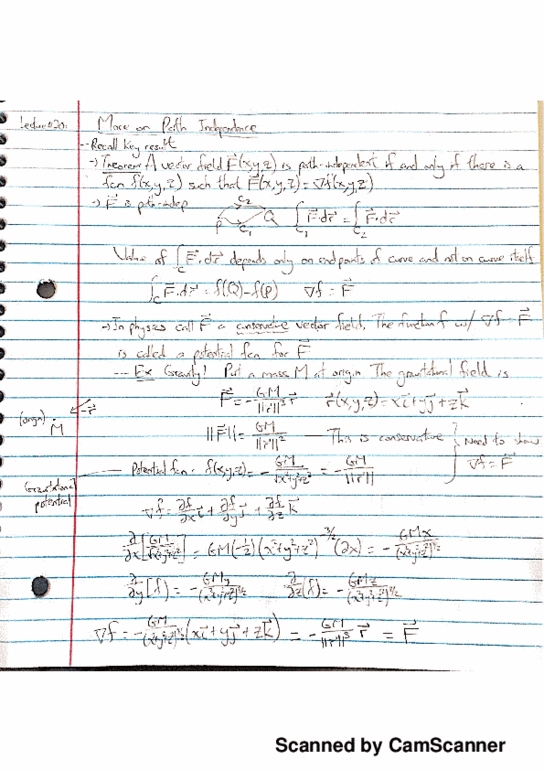 Lecture 20: More on Path Independence
-- Recall key result
→ Theorem A vector field F⃗(x,y,z) is path-independent if and only if there is a
fcn f(x,y,z) such that F⃗(x,y,z) = ∇f(x,y,z)
→ F⃗ is path-indep C₂ P C₁ Q ∫_C₁ F⃗·dr⃗ = ∫_C₂ F⃗·dr⃗
Value of ∫_C F⃗·dr⃗ depends only on endpoints of curve and not on curve itself
∫_C F⃗·dr⃗ = f(Q)-f(P) ∇f = F⃗
→ In physics call F⃗ a conservative vector field. The function f w/ ∇f = F⃗
is called a potential fcn for F⃗
--- Ex Gravity! Put a mass M at origin. The gravitational field is
(origin) M -r⃗ F⃗ = -GM/||r⃗||³ r⃗ r⃗(x,y,z) = xi⃗+yj⃗+zk⃗
||F⃗|| = GM/||r⃗||² — This is conservative } Need to show ∇f = F⃗
Gravitational potential — Potential fcn. f(x,y,z) = -GM/√(x²+y²+z²) = -GM/||r⃗||
∇f = ∂f/∂x i⃗ + ∂f/∂y j⃗ + ∂f/∂z k⃗
∂/∂x [GM/√(x²+y²+z²)] = GM(-1/2)(x²+y²+z²)^3/2 (2x) = -GMx/(x²+y²+z²)^3/2
∂/∂y [f] = -GMy/(x²+y²+z²)^3/2 ∂/∂z (f) = -GMz/(x²+y²+z²)^3/2
∇f = -GM/(x²+y²+z²)^3/2 (xi⃗+yj⃗+zk⃗) = -GM/||r⃗||³ r⃗ = F⃗
Scanned by CamScanner